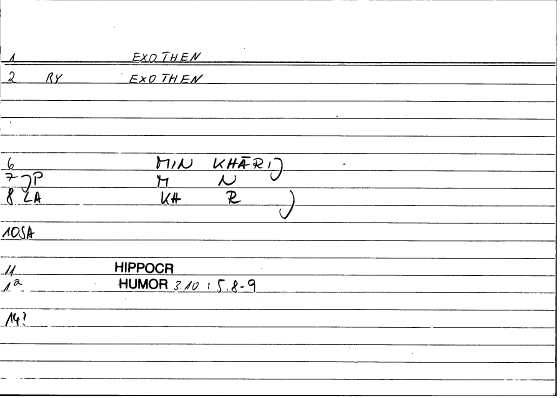 1 EXOTHEN
2 RY EXOTHEN
6 MIN KHĀRIJ
7 JP M N
8 LA KH R J
10SA
11 HIPPOCR
12 HUMOR 310 : 5.8-9
14?